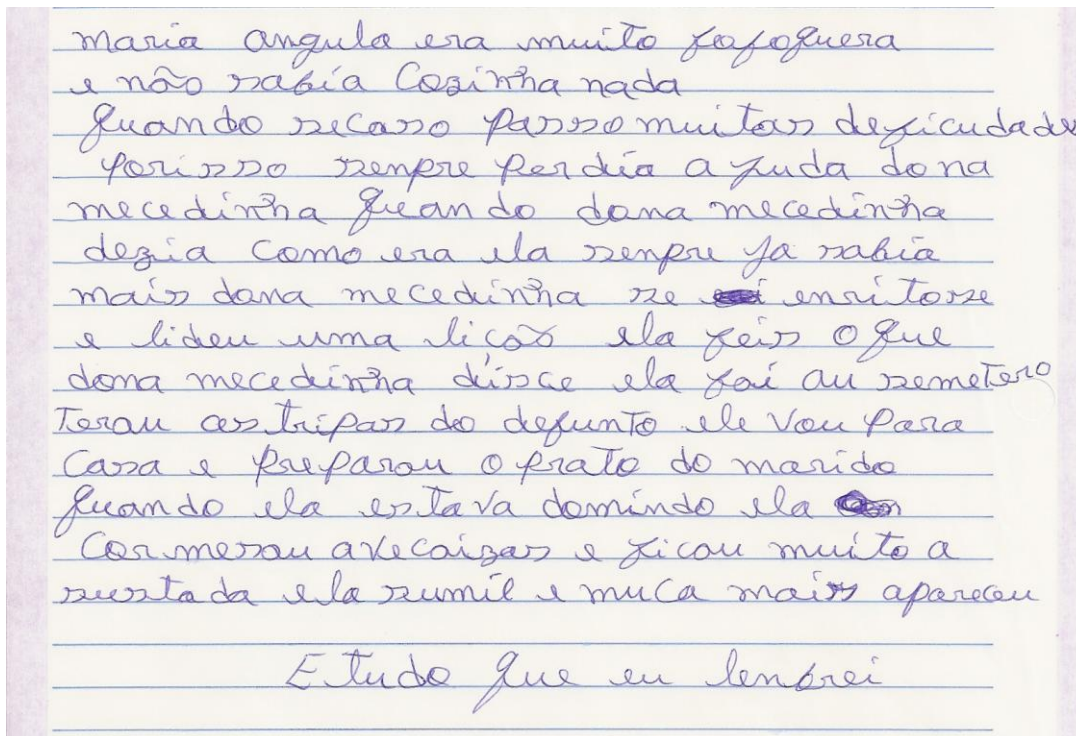 maria angula era muito fofoquera
e não sabia Cozinha nada
quando secaso passo muitas deficudade
porisso senpre perdia a juda dona
mecedinha quan do dona mecedinha
dezia como era ela senpre ja sabia
mais dona mecedinha se ensitosse
e lideu uma lição ela feis o que
dona mecedinha disce ela foi au semetero
Terau as tripas do defunto ele vou para
casa e preparou o prato do marido
quando ela estava domindo ela
Cormesou a ve coizas e ficou muito a
sustada ela sumil e muca mais apareceu
E tudo que eu lenbrei